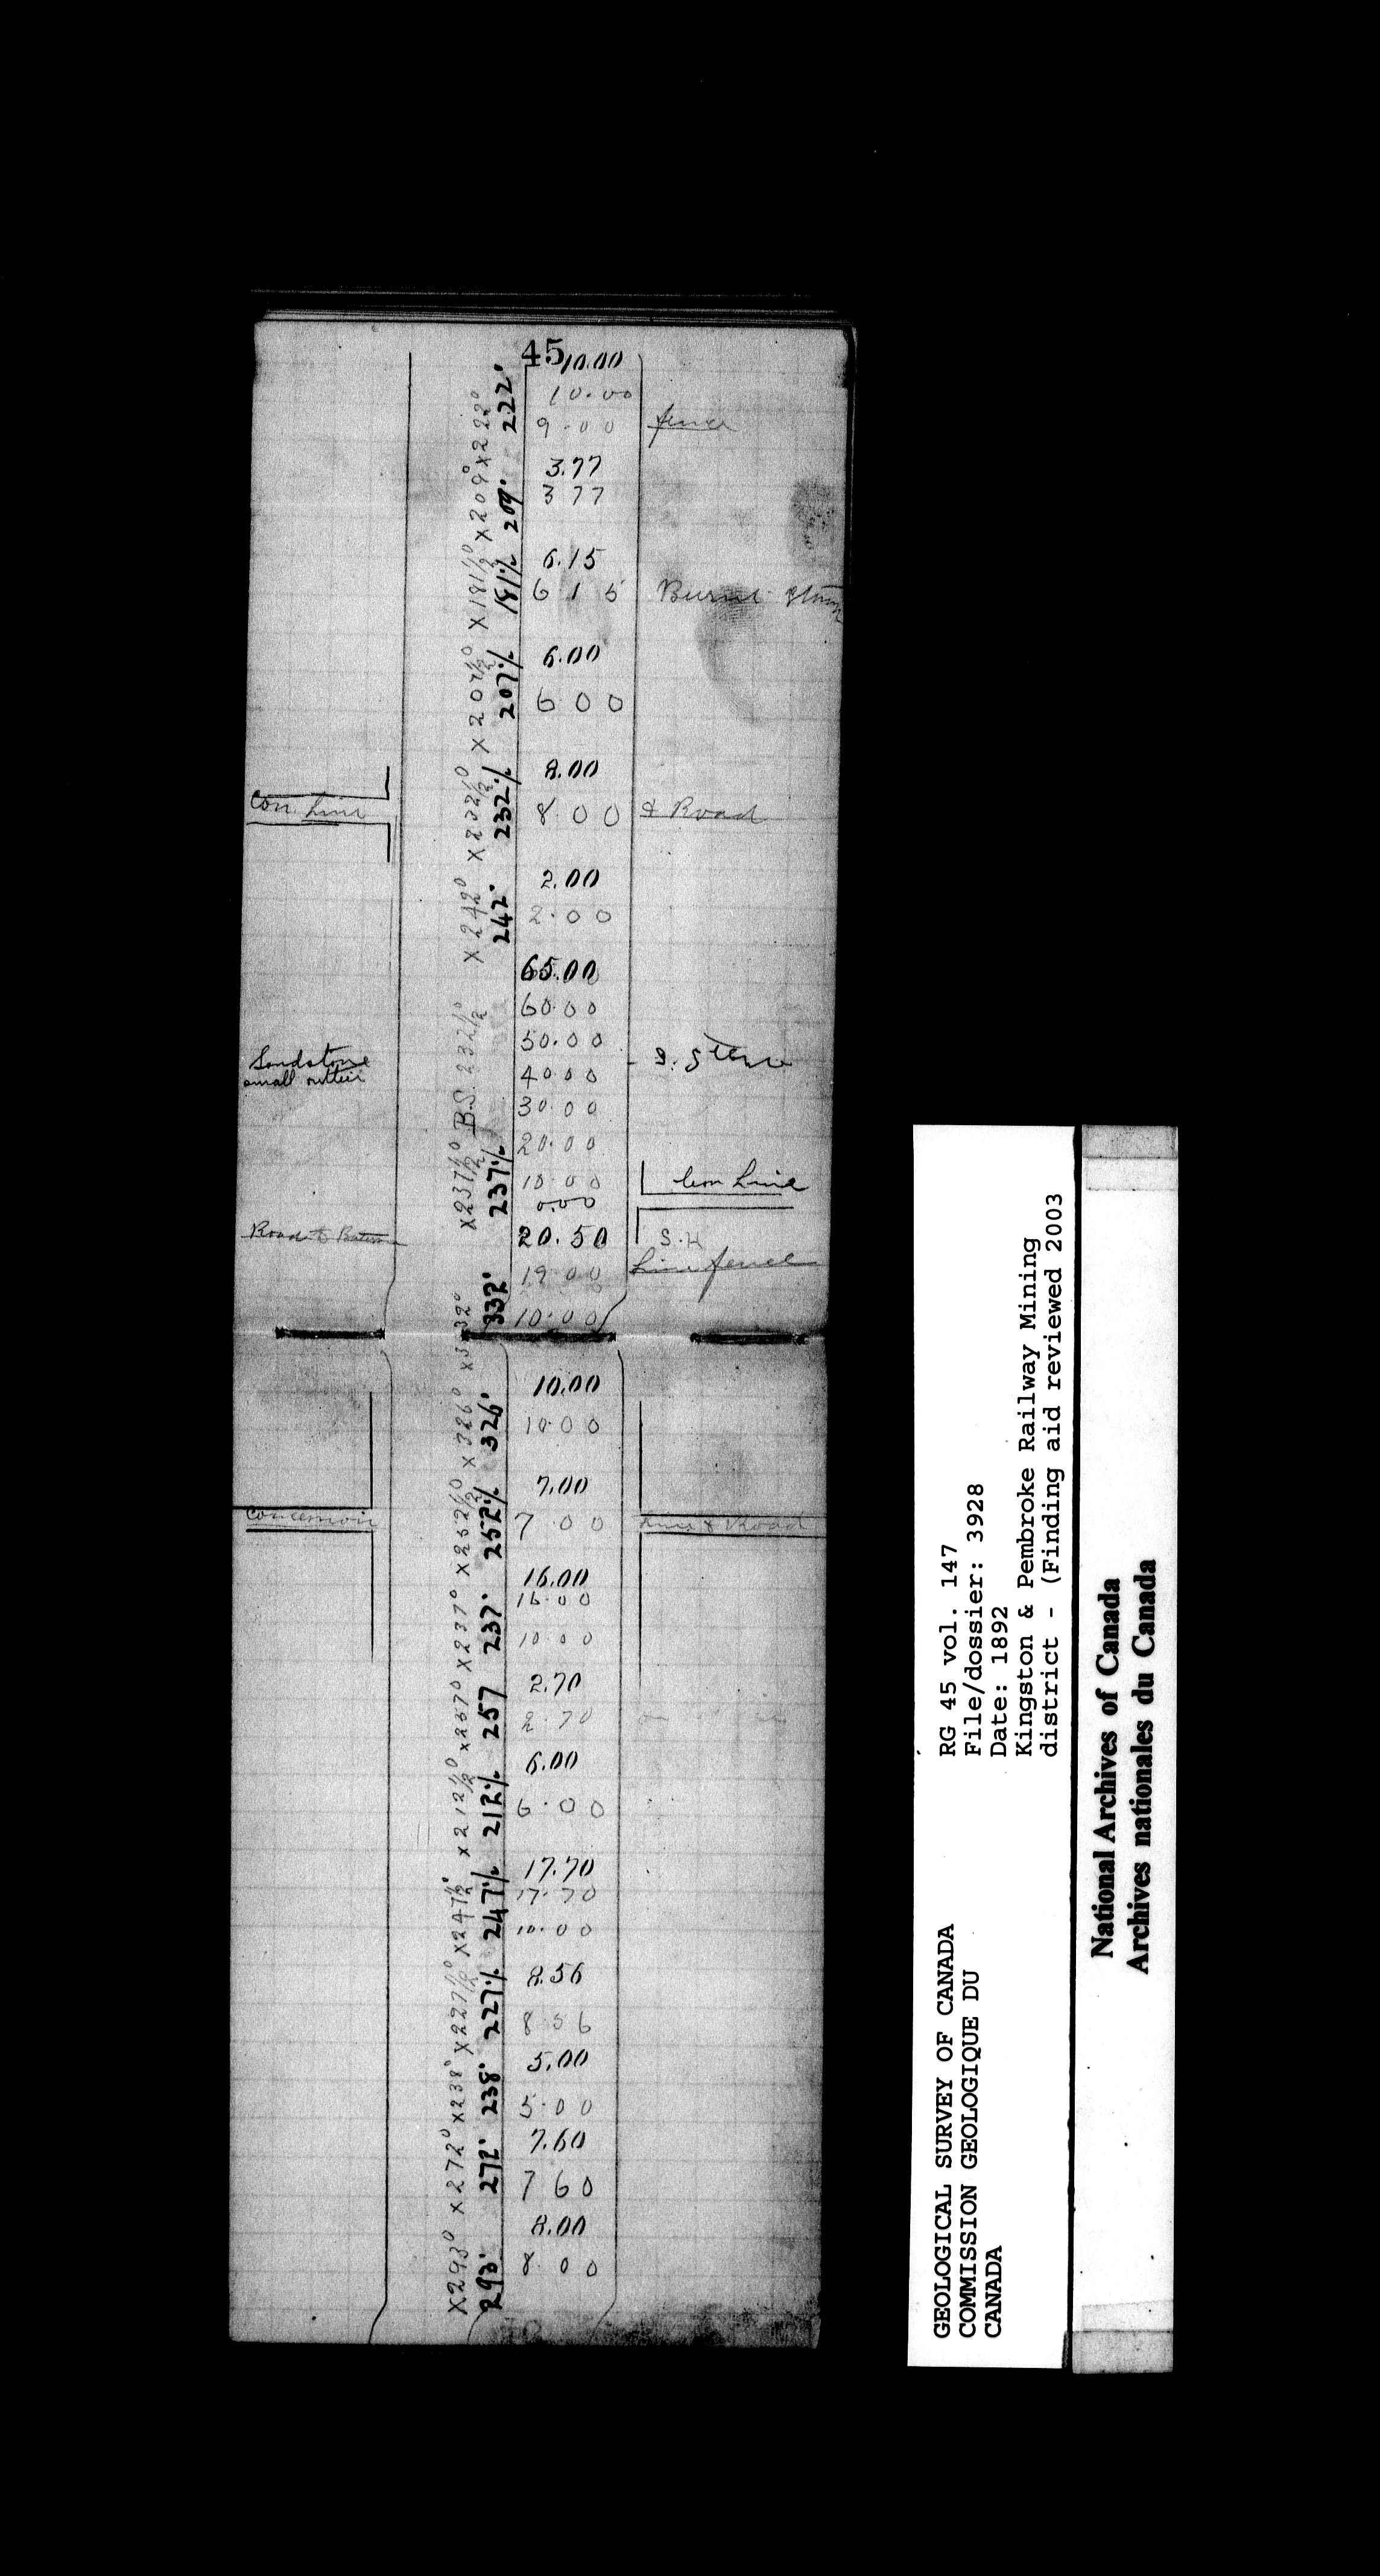 45
10.00
10.00
9.00 fence
x222° 222°
3.77
3 77
x209° 209°
6.15
6 1 5 Burnt
x181½° 181½
6.00
6 0 0
x207½° 207½
8.00
Con. Line 8.00 & Road
x232½° 232½
2.00
2.00
x242° 242°
65.00
60.00
50.00
Sandstone
small
40.00
30.00
20.00
10.00 Con Line
0.00
x237½° B.S. 232½° 237½
20.50 S.H
Road to
19.00 Line fence
10.00
x332° 332°
10.00
10.00
x326° 326°
7.00
Concession 7.00 Line & Road
x252½° 252½
16.00
16.00
10.00
x237° 237°
2.70
2.70
x257° 257
6.00
6.00
x212½° 212½
17.70
17.70
10.00
x247½° 247½
8.56
8 56
x227½° 227½
5.00
5.00
x238° 238°
7.60
7 60
x272° 272°
8.00
8.00
x293° 293°
GEOLOGICAL SURVEY OF CANADA
COMMISSION GEOLOGIQUE DU
CANADA
RG 45 vol. 147
File/dossier: 3928
Date: 1892
Kingston & Pembroke Railway Mining
district - (Finding aid reviewed 2003
National Archives of Canada
Archives nationales du Canada